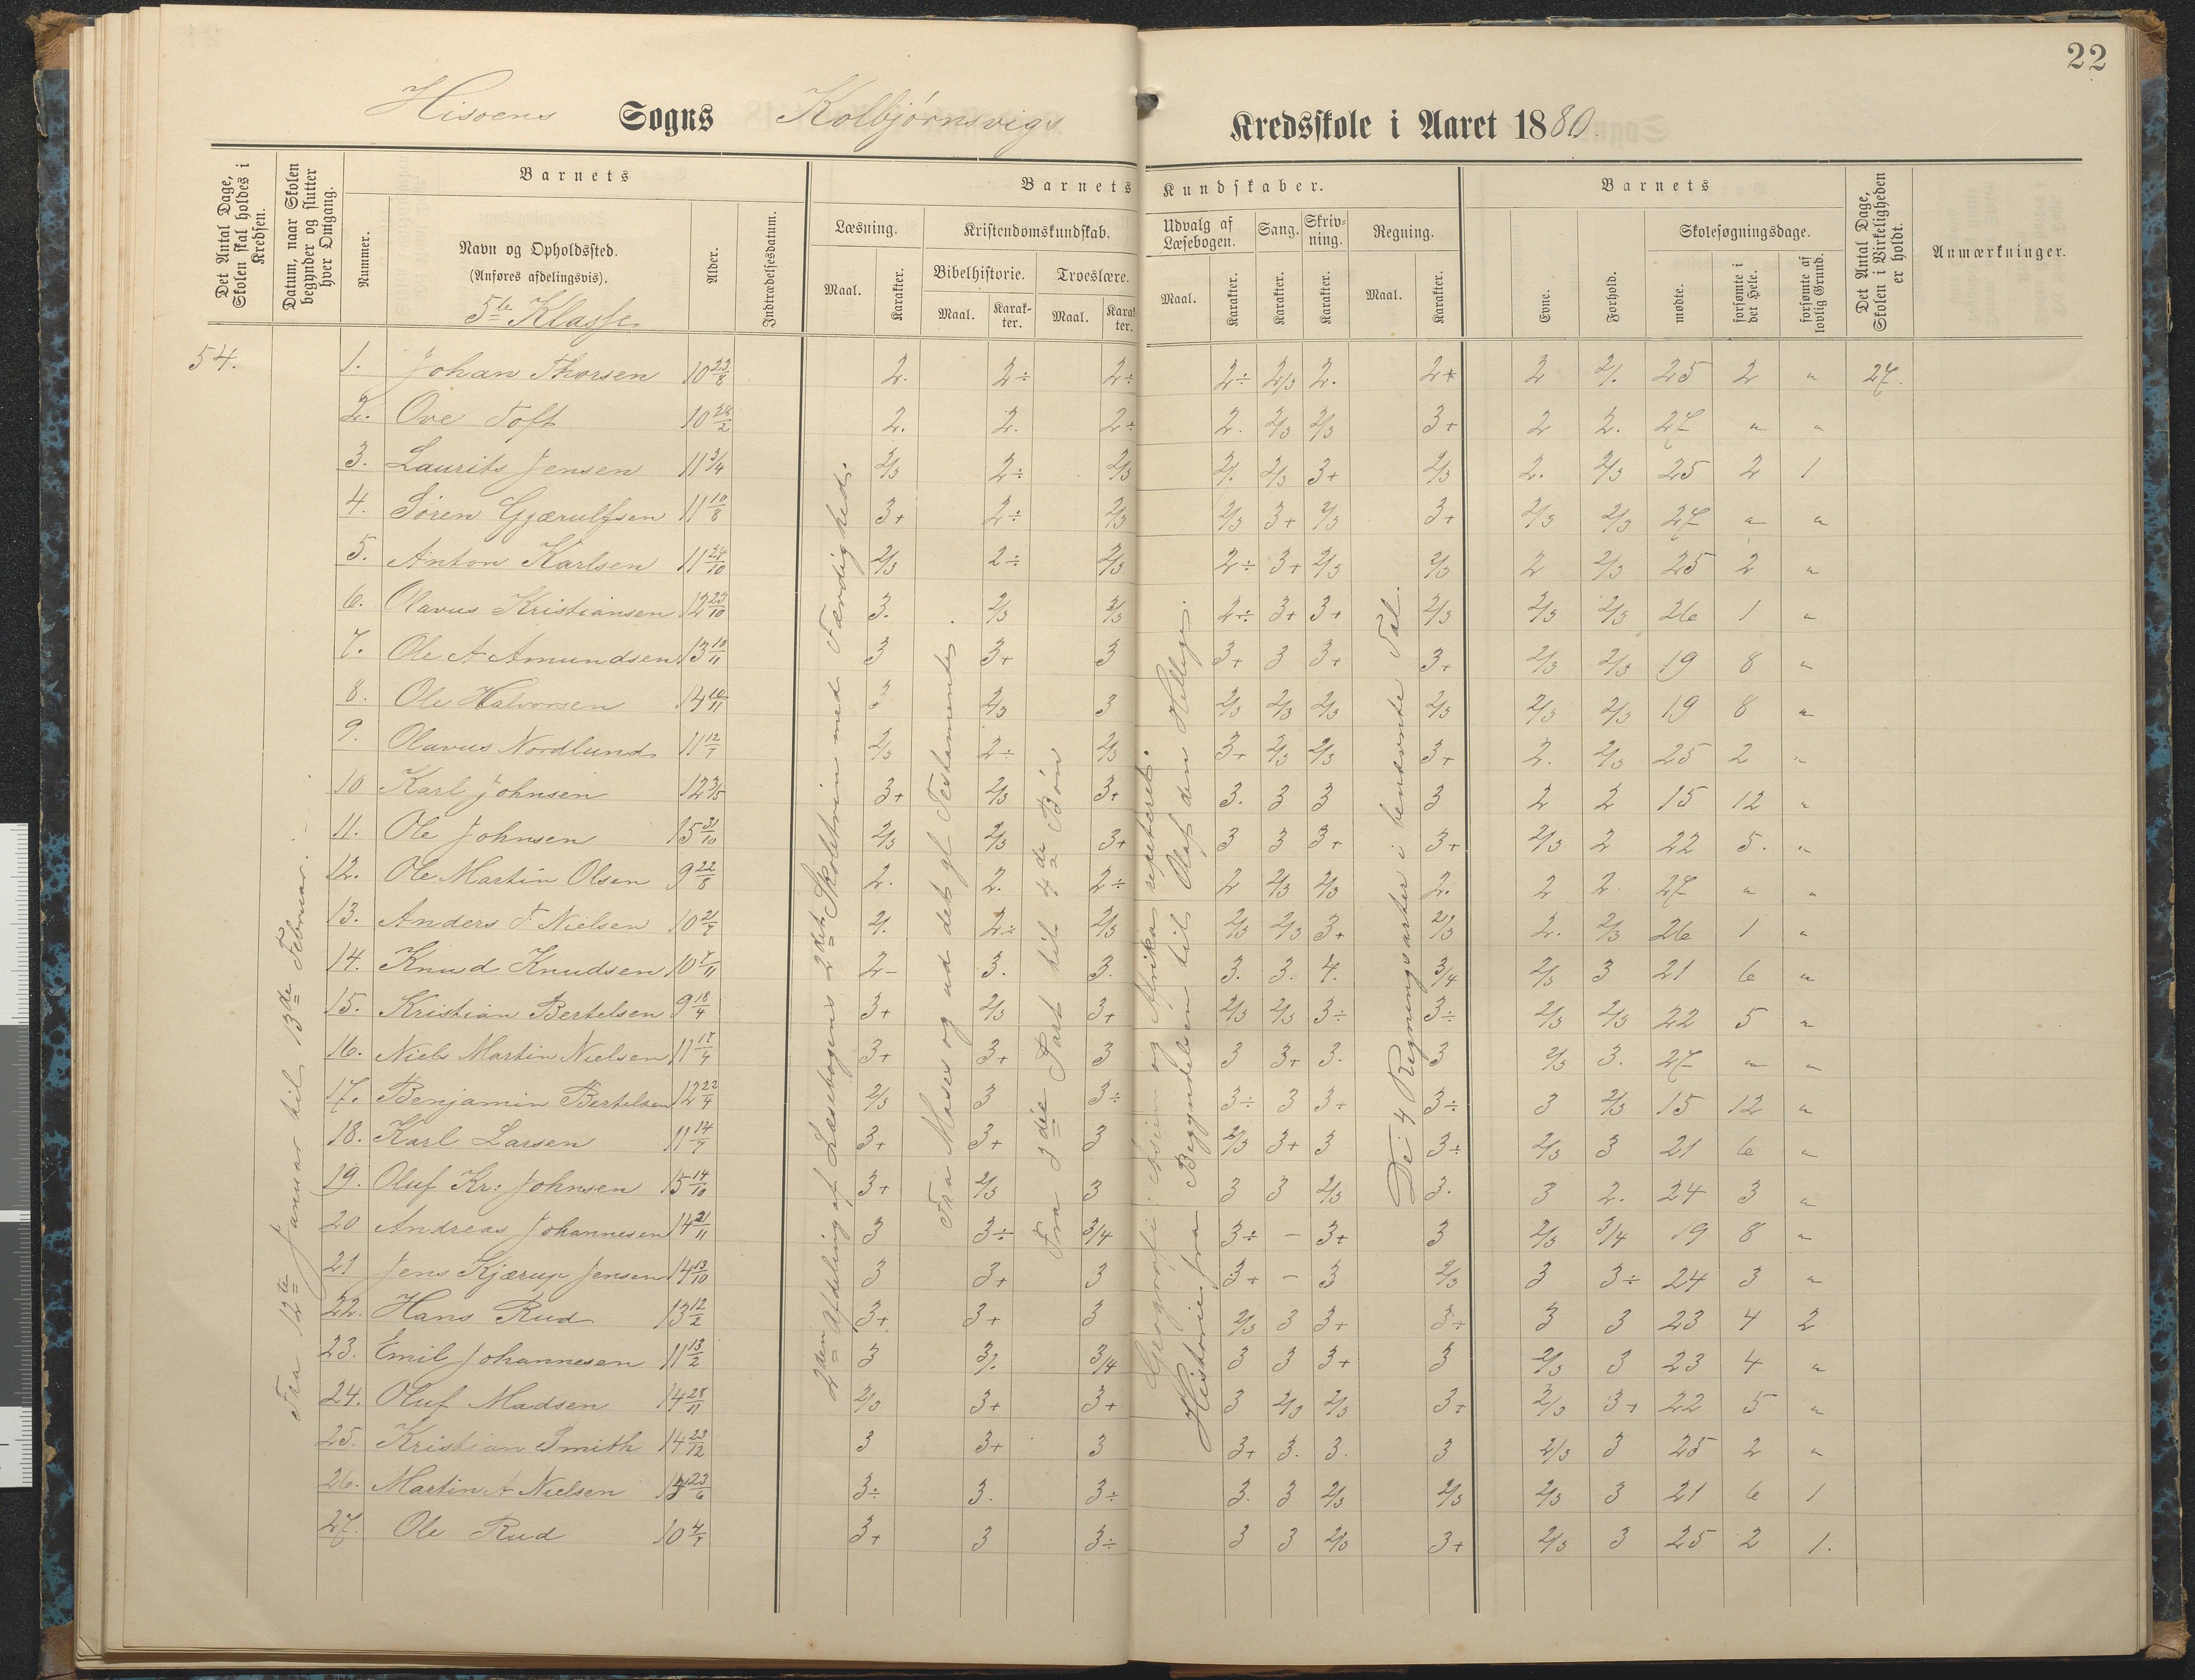 22
Hisøens Sogns Kolbjørnsvigs Kredsskole i Aaret 1880.
Det Antal Dage, Skolen skal holdes i Kredsen.
Datum, naar Skolen begynder og slutter hver Omgang.
Barnets
Nummer.
Navn og Opholdssted.
(Anføres afdelingsvis).
5te Klasse
Alder.
Indtrædelsesdatum.
Barnets Kundskaber.
Læsning.
Maal. Karakter.
Kristendomskundskab.
Bibelhistorie. Troeslære.
Maal. Karakter. Maal. Karakter.
Udvalg af Læsebogen.
Maal. Karakter.
Sang.
Karakter.
Skrivning.
Karakter.
Regning.
Maal. Karakter.
Barnets
Evne. Forhold.
Skolesøgningsdage.
mødte. forsømte i det Hele. forsømte af lovlig Grund.
Det Antal Dage, Skolen i Virkeligheden er holdt.
Anmærkninger.
54.
Fra 12te Januar til 13de Februar.
2den Afdeling af Læsebogens 2det Skoletrin med Færdighed.
Fra Moses og ud det gl Testamente
Fra 3die Part til 4de Bøn
Geografi: Asien og Afrika repeteret.
Historie fra Begyndelsen til Olaf den Hellige.
De 4 Regningsarter i benævnte Tal.
1. Johan Thorsen 10 23/8 2. 2÷ 2÷ 2÷ 2/3 2. 2+ 2 2. 25 2 " 27.
2. Ove Toft 10 28/2 2. 2. 2÷ 2. 2/3 2/3 3+ 2 2. 27 " "
3. Laurits Jensen 11 3/4 2/3 2÷ 2/3 2. 2/3 3+ 2/3 2. 2/3 25 2 1
4. Søren Gjærulfsen 11 10/8 3+ 2÷ 2/3 2/3 3+ 2/3 3+ 2/3 2/3 27 " "
5. Anton Karlsen 11 24/10 2/3 2÷ 2/3 2÷ 3+ 2/3 2/3 2 2/3 25 2 "
6. Olavus Kristiansen 12 23/10 3. 2/3 2/3 2÷ 3+ 3+ 2/3 2/3 2/3 26 1 "
7. Ole A Amundsen 13 10/11 3 3+ 3 3+ 3 3+ 3+ 2/3 2/3 19 8 "
8. Ole Halvorsen 14 10/11 3 2/3 3 2/3 2/3 2/3 2/3 2/3 2/3 19 8 "
9. Olavus Nordlund 11 12/7 2/3 2÷ 2/3 3+ 2/3 2/3 3+ 2. 2/3 25 2 "
10 Karl Johnsen 12 3/5 3+ 2/3 3+ 3. 3 3 3 2 2 15 12 "
11. Ole Johnsen 15 31/10 2/3 2/3 3+ 3 3 3+ 3+ 2/3 2 22 5. "
12. Ole Martin Olsen 9 22/8 2. 2. 2÷ 2 2/3 2/3 2. 2 2 27 " "
13. Anders F Nielsen 10 21/7 2. 2÷ 2/3 2/3 2/3 3+ 2/3 2. 2/3 26 1 "
14. Knud Knudsen 10 7/11 2- 3. 3. 3. 3. 4. 3/4 2/3 3 21 6 "
15. Kristian Bertelsen 9 18/4 3+ 2/3 3+ 2/3 2/3 3÷ 3÷ 2/3 2/3 22 5 "
16. Niels Martin Nielsen 11 17/4 3+ 3+ 3 3 3+ 3. 3 2/3 3. 27 " "
17. Benjamin Bertelsen 12 22/4 2/3 3 3÷ 3÷ 3 3+ 3÷ 3 2/3 15 12 "
18. Karl Larsen 11 14/7 3+ 3+ 3 2/3 3+ 3 3÷ 2/3 3 21 6 "
19. Oluf Kr: Johnsen 15 14/10 3+ 2/3 3 3 3 2/3 3. 3 2. 24 3 "
20 Andreas Johannesen 14 21/11 3 3÷ 3/4 3÷ - 3+ 3 2/3 3/4 19 8 "
21 Jens Kjærup Jensen 14 13/10 3 3+ 3 3+ - 3 2/3 3 3÷ 24 3 "
22. Hans Rud 13 12/2 3+ 3+ 3 2/3 3 3+ 3+ 3 3 23 4 2
23. Emil Johannesen 11 13/2 3 3/. 3/4 3 3 3+ 3 2/3 3 23 4 "
24. Oluf Madsen 14 28/11 2/3 3+ 3+ 3 2/3 2/3 3+ 2/3 3+ 22 5 "
25. Kristian Smith 14 23/12 3 3+ 3 3+ 3. 3. 3 2/3 3 25 2 "
26. Martin A Nielsen 23/6 3÷ 3. 3÷ 3. 3 2/3 2/3 2/3 3 21 6 1
27. Ole Rud 10 4/7 3+ 3 3÷ 3 3 2/3 3+ 2/3 3 25 2 1.